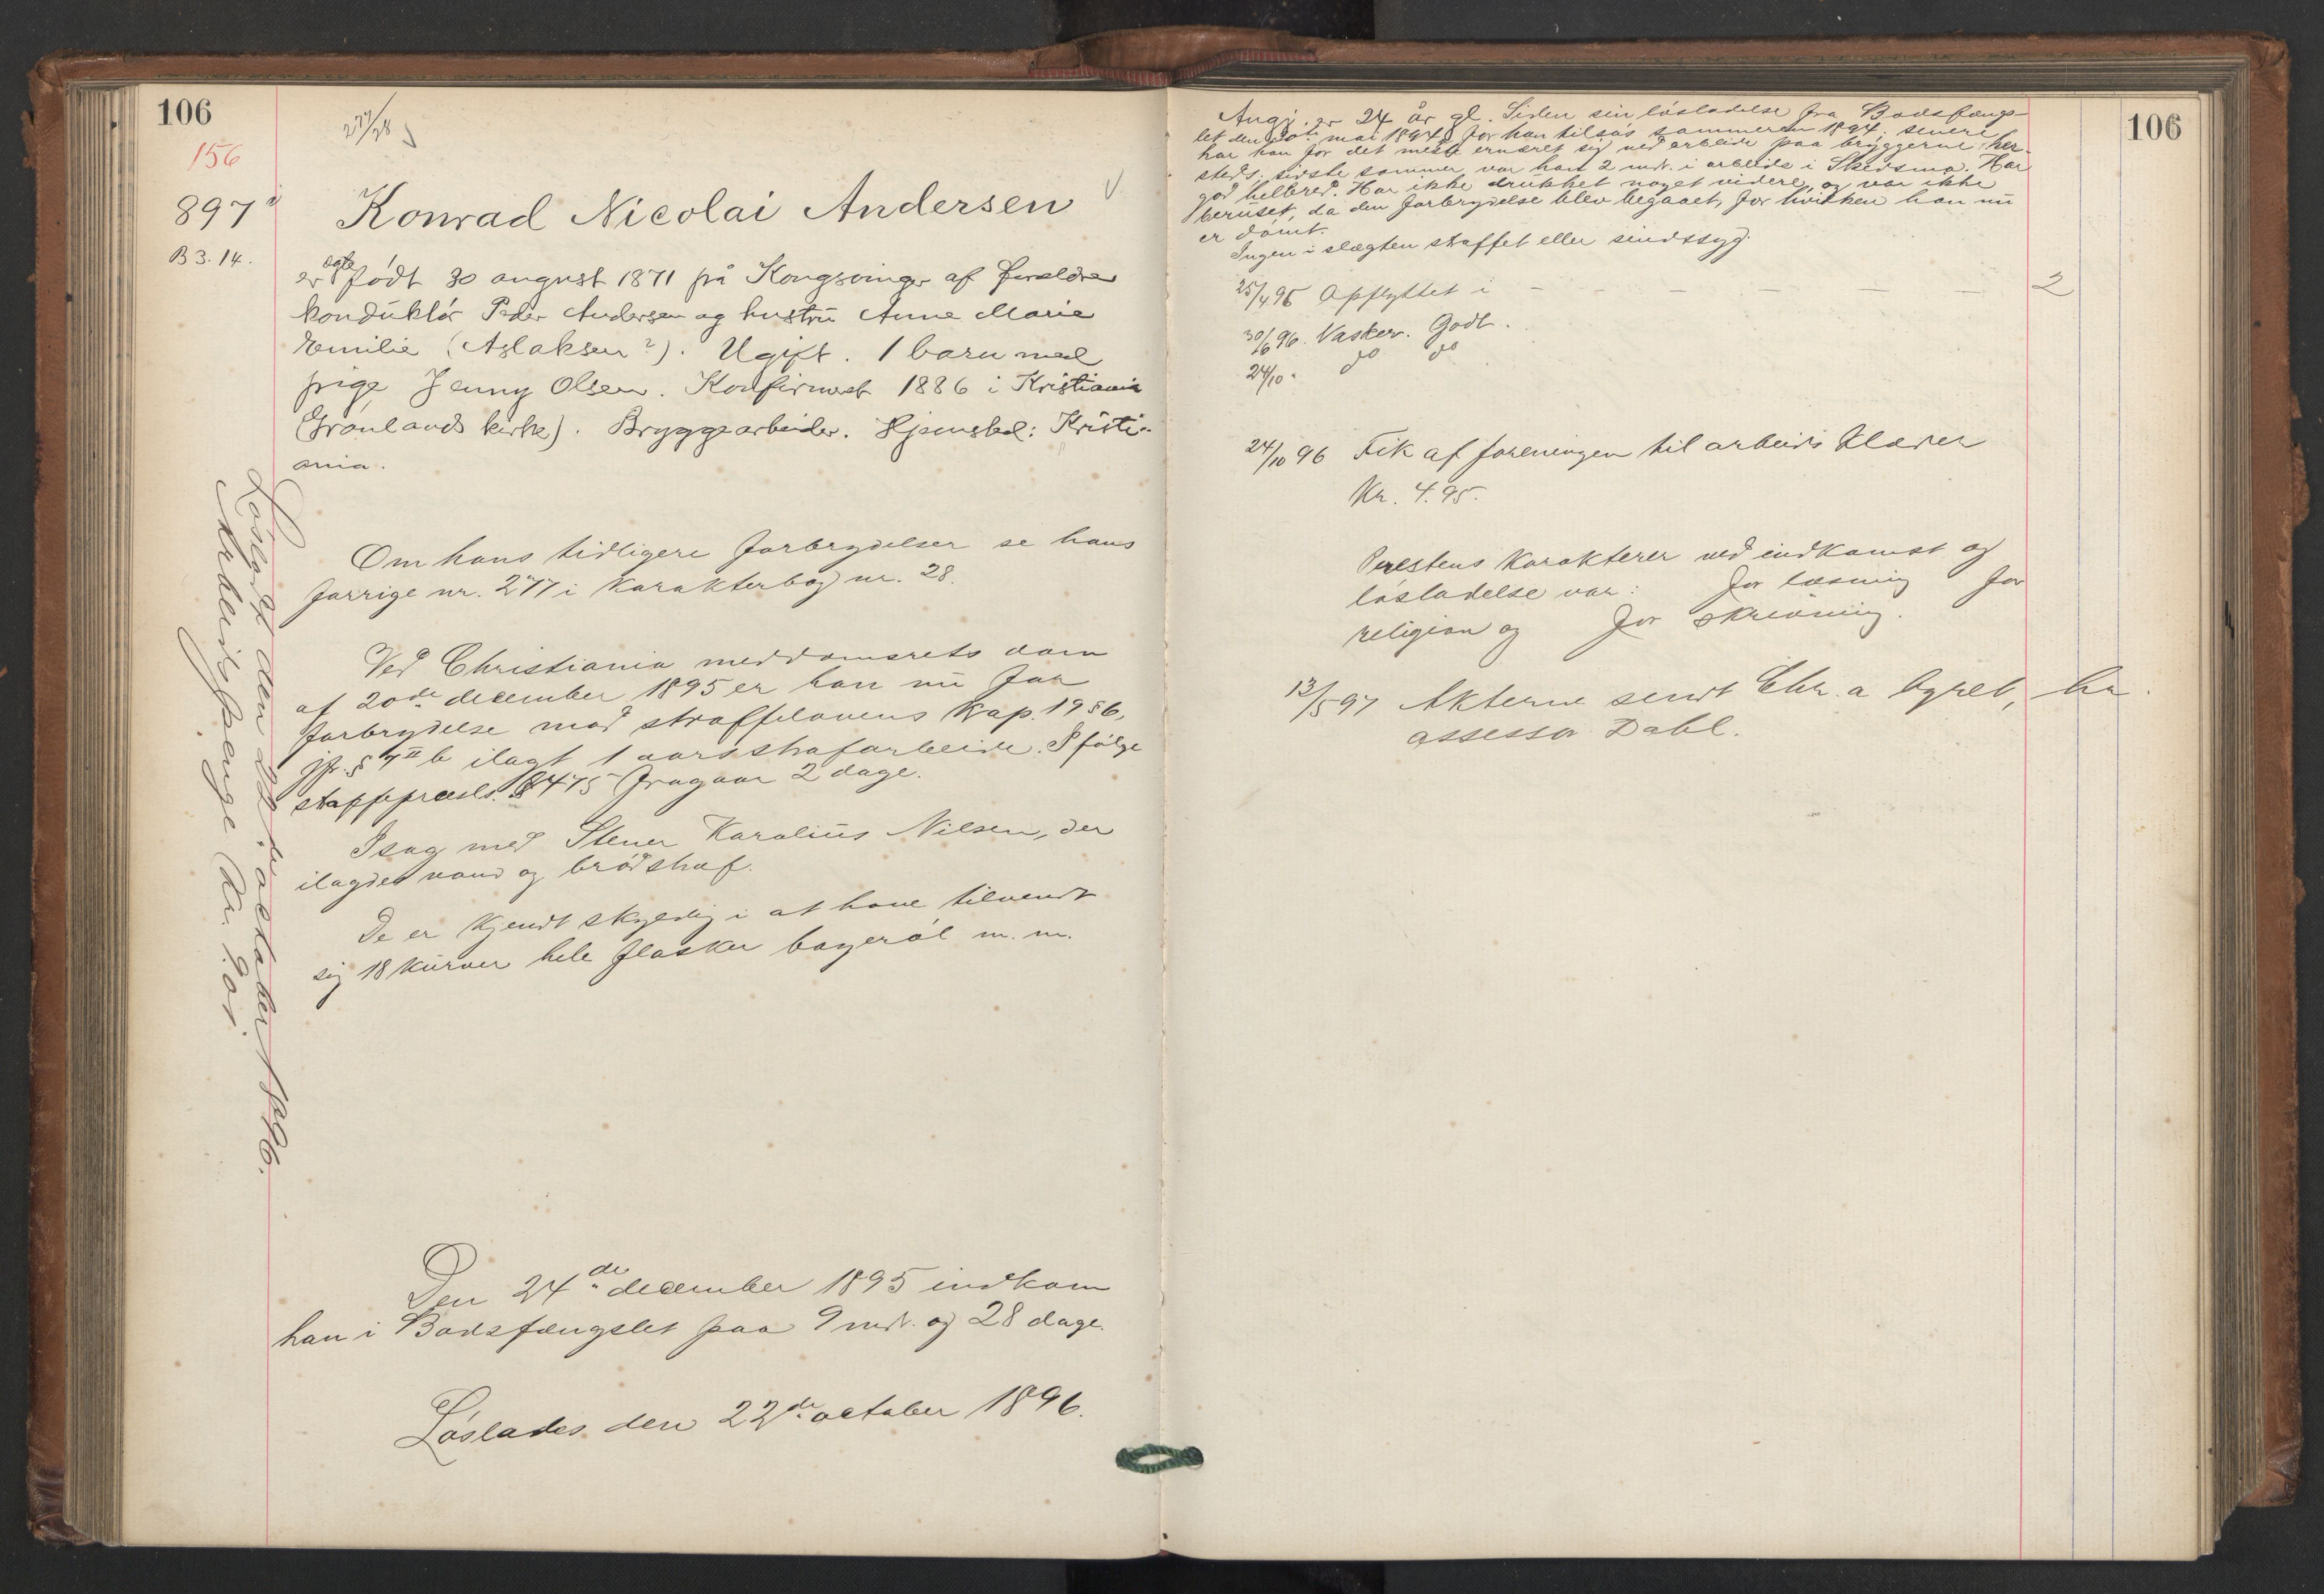 106
156
277/28
897
B 3. 14.
Konrad Nicolai Andersen
er ægte født 30 august 1871 på Kongsvinger af forældre
konduktør Peder Andersen og hustru Anne Marie
Emilie (Aslaksen?). Ugift. 1 barn med
pige Jenny Olsen. Konfirmert 1886 i Kristiania
(Grønlands kirke). Bryggearbeider. Hjemsted: Kristi-
ania.
Om hans tidligere forbrydelser se hans
forrige nr. 277 i karakterbog nr. 28.
Ved Christiania meddomsrets dom
af 20de december 1895 er han nu for
forbrydelse mod straffelovens kap. 19 § 6,
jfr. § 7 II b ilagt 1 aars strafarbeide. Ifølge
straffeprocesl. § 475 fragaar 2 dage.
I sag med Stener Karolius Nilsen, der
ilagdes vand og brødstraf.
De er kjendt skyldig i at have tilvendt
sig 18 kurver hele flasker bayerøl m. m.
Den 24de december 1895 indkom
han i Bodsfængslet paa 9 mdr. og 28 dage.
Løslades den 22de october 1896.
Løsladt den 22de october 1896.
Arbeidspenge Kr. 9.01.
106
Angj. er 24 år gl. Siden sin løsladelse fra Bodsfængs-
let den 20de mai 1894 for han tilsøs sommeren 1894; senere
har han for det meste ernæret sig ved arbeide paa bryggerne her-
steds. sidste sommer var han 2 mdr. i arbeide i Skedsmo. Har
god helbred. Har ikke drukket noget videre, og var ikke
beruset, da den forbrydelse blev begaaet, for hvilken han nu
er dømt.
Ingen i slægten straffet eller sindssyg.
25/4 96 Opflyttet i - - - - - - 2
30/6 96. Vasker. Godt.
24/10 " do do
24/10 96 Fik af foreningen til arbeids klæder
Kr. 4.95.
Prestens karakterer ved indkomst og
løsladelse var: for læsning for
religion og for skrivning.
13/5 97 Akterne sendt Chr.a byret, hr.
assessor Dahl.